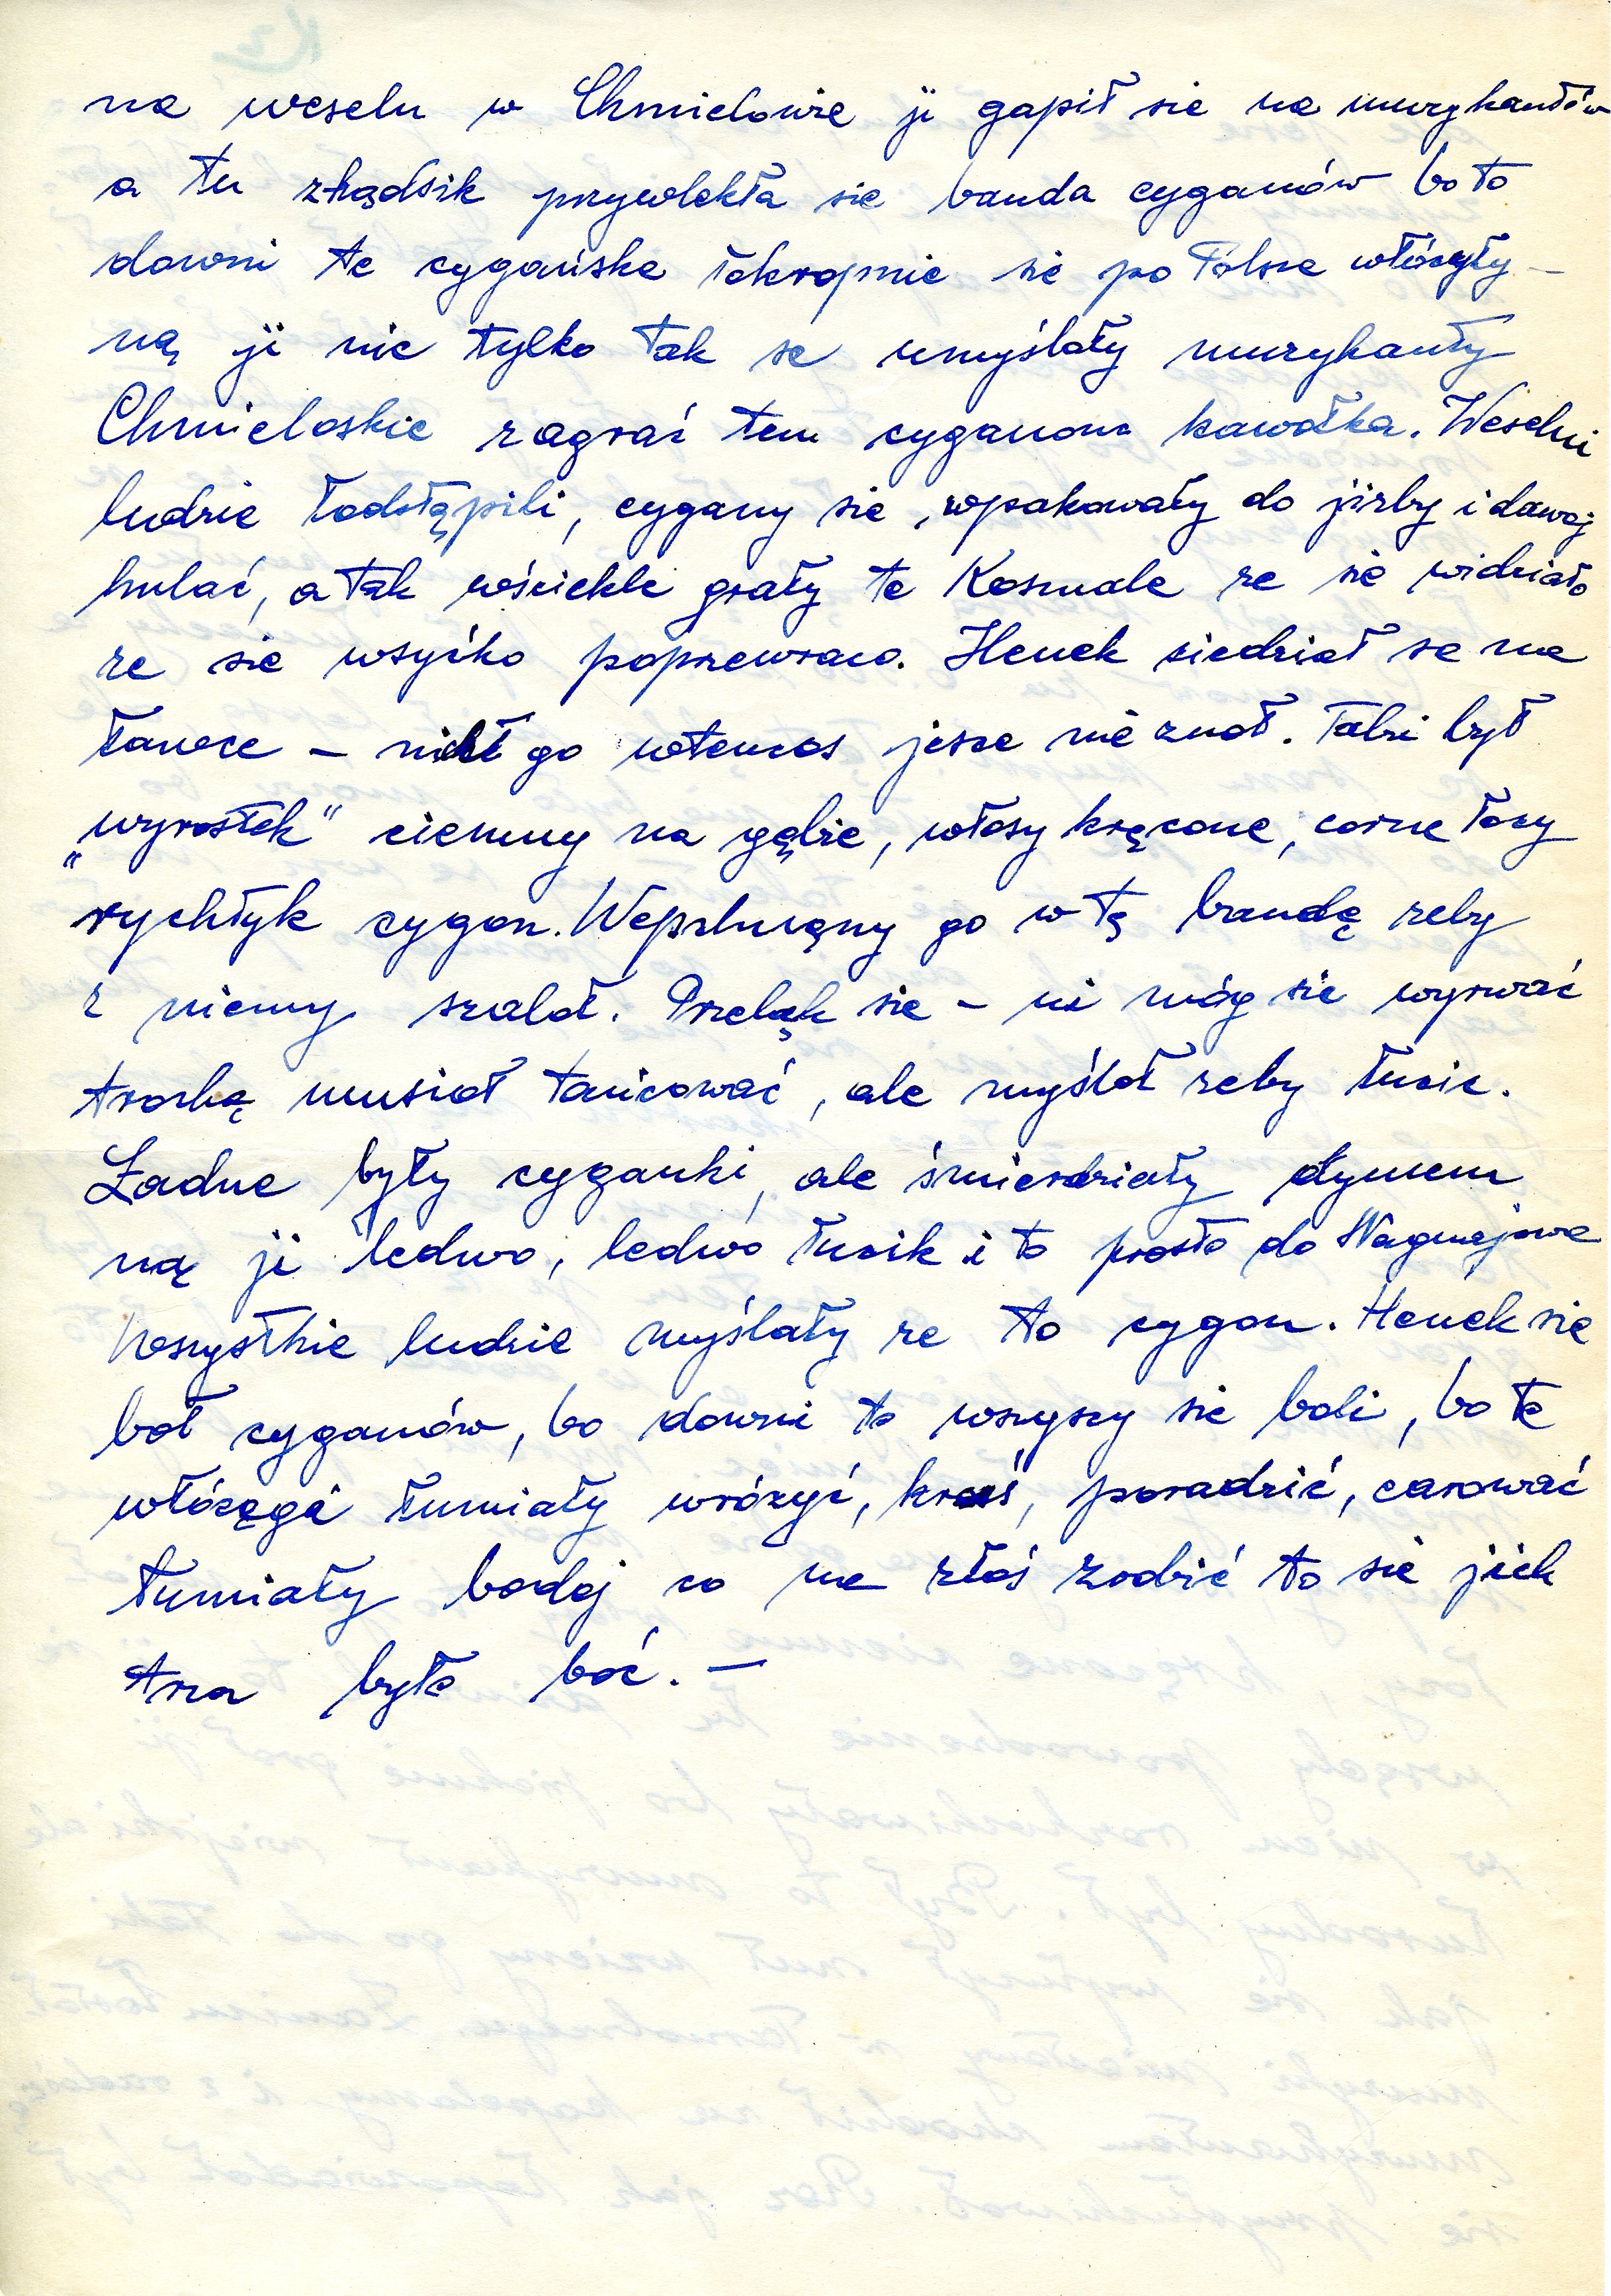 na weselu w Chmielowie ji gapił sie na muzykantów
a tu zkądsik przywlekła sie banda cyganów bo to
downi te cygańske łokropnie sie po Polsce włócyły –
ną ji nie tylko tak se umyślały muzykanty
Chmieloskie zagrać tem cyganom kawołka. Weselni
ludzie łodstąpili, cygany sie wpakowały do jizby i dawaj
hulać, a tak wściekle grały te Kosmale ze sie widziało
ze sie wszyćko poprzewraco. Henek siedział se na
ławce – nikt go wtencos jesce nie znoł. Taki był
„wyrostek" ciemny na gębie, włosy kręcone, corne łocy
rychtyk cygon. Wepchnęny go w tą bandę zeby
z niemy szaloł. Przeląk sie – ni móg sie wyrwać
trochą musioł tańcować, ale myśloł zeby łucic.
Ładne były cyganki, ale śmierdziały dymem
ną ji ledwo, ledwo łucik i to prosto do Nagnajowa
Wszystkie ludzie myślały ze to cygon. Henek się
boł cyganów, bo downi to wszyscy sie boli, bo te
włócęgi łumiały wrózyć, kraś, poradzić, carować
łumiały bodej co na złoś zrobić to sie jich
trza było boć. –